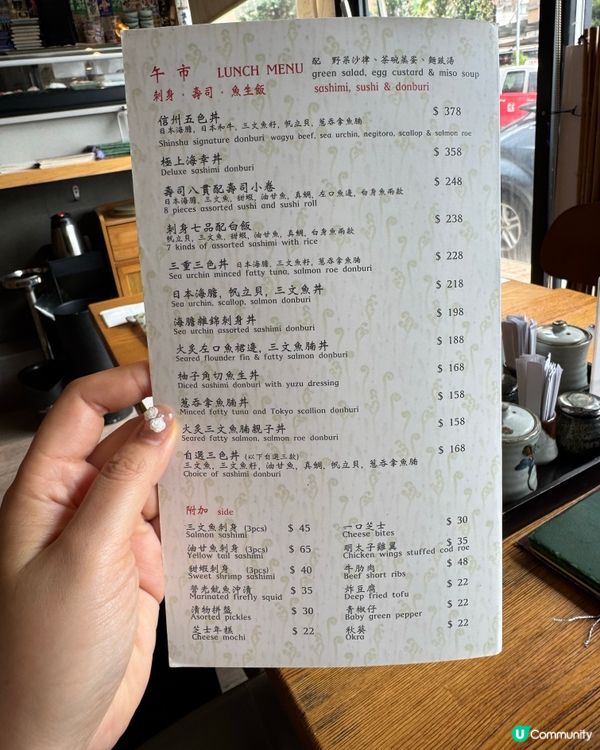 午市 LUNCH MENU
配 野菜沙律、茶碗蒸蛋、麵豉湯
green salad, egg custard & miso soup
刺身 · 壽司 · 魚生飯 sashimi, sushi & donburi
信州五色丼 $ 378
日本海膽, 日本和牛, 三文魚籽, 帆立貝, 葱吞拿魚腩
Shinshu signature donburi wagyu beef, sea urchin, negitoro, scallop & salmon roe
極上海幸丼 $ 358
Deluxe sashimi donburi
壽司八貫配壽司小卷 $ 248
日本海膽, 三文魚, 甜蝦, 油甘魚, 真鯛, 左口魚邊, 白身魚兩款
8 pieces assorted sushi and sushi roll
刺身七品配白飯 $ 238
帆立貝, 三文魚, 甜蝦, 油甘魚, 真鯛, 白身魚兩款
7 kinds of assorted sashimi with rice
三重三色丼 日本海膽, 三文魚籽, 葱吞拿魚腩 $ 228
Sea urchin minced fatty tuna, salmon roe donburi
日本海膽, 帆立貝, 三文魚丼 $ 218
Sea urchin, scallop, salmon donburi
海膽雜錦刺身丼 $ 198
Sea urchin assorted sashimi donburi
火炙左口魚裙邊, 三文魚腩丼 $ 188
Seared flounder fin & fatty salmon donburi
柚子角切魚生丼 $ 168
Diced sashimi donburi with yuzu dressing
葱吞拿魚腩丼 $ 158
Minced fatty tuna and Tokyo scallion donburi
火炙三文魚腩親子丼 $ 158
Seared fatty salmon, salmon roe donburi
自選三色丼 (以下自選三款) $ 168
三文魚, 三文魚籽, 油甘魚, 真鯛, 帆立貝, 葱吞拿魚腩
Choice of sashimi donburi
附加 side
三文魚刺身 (3pcs) $ 45
Salmon sashimi
油甘魚刺身 (3pcs) $ 65
Yellow tail sashimi
甜蝦刺身 (3pcs) $ 40
Sweet shrimp sashimi
螢光魷魚沖漬 $ 35
Marinated firefly squid
漬物拼盤 $ 30
Asorted pickles
芝士年糕 $ 22
Cheese mochi
一口芝士 $ 30
Cheese bites
明太子雞翼 $ 35
Chicken wings stuffed cod roe
牛肋肉 $ 48
Beef short ribs
炸豆腐 $ 22
Deep fried tofu
青椒仔 $ 22
Baby green pepper
秋葵 $ 22
Okra
U Community